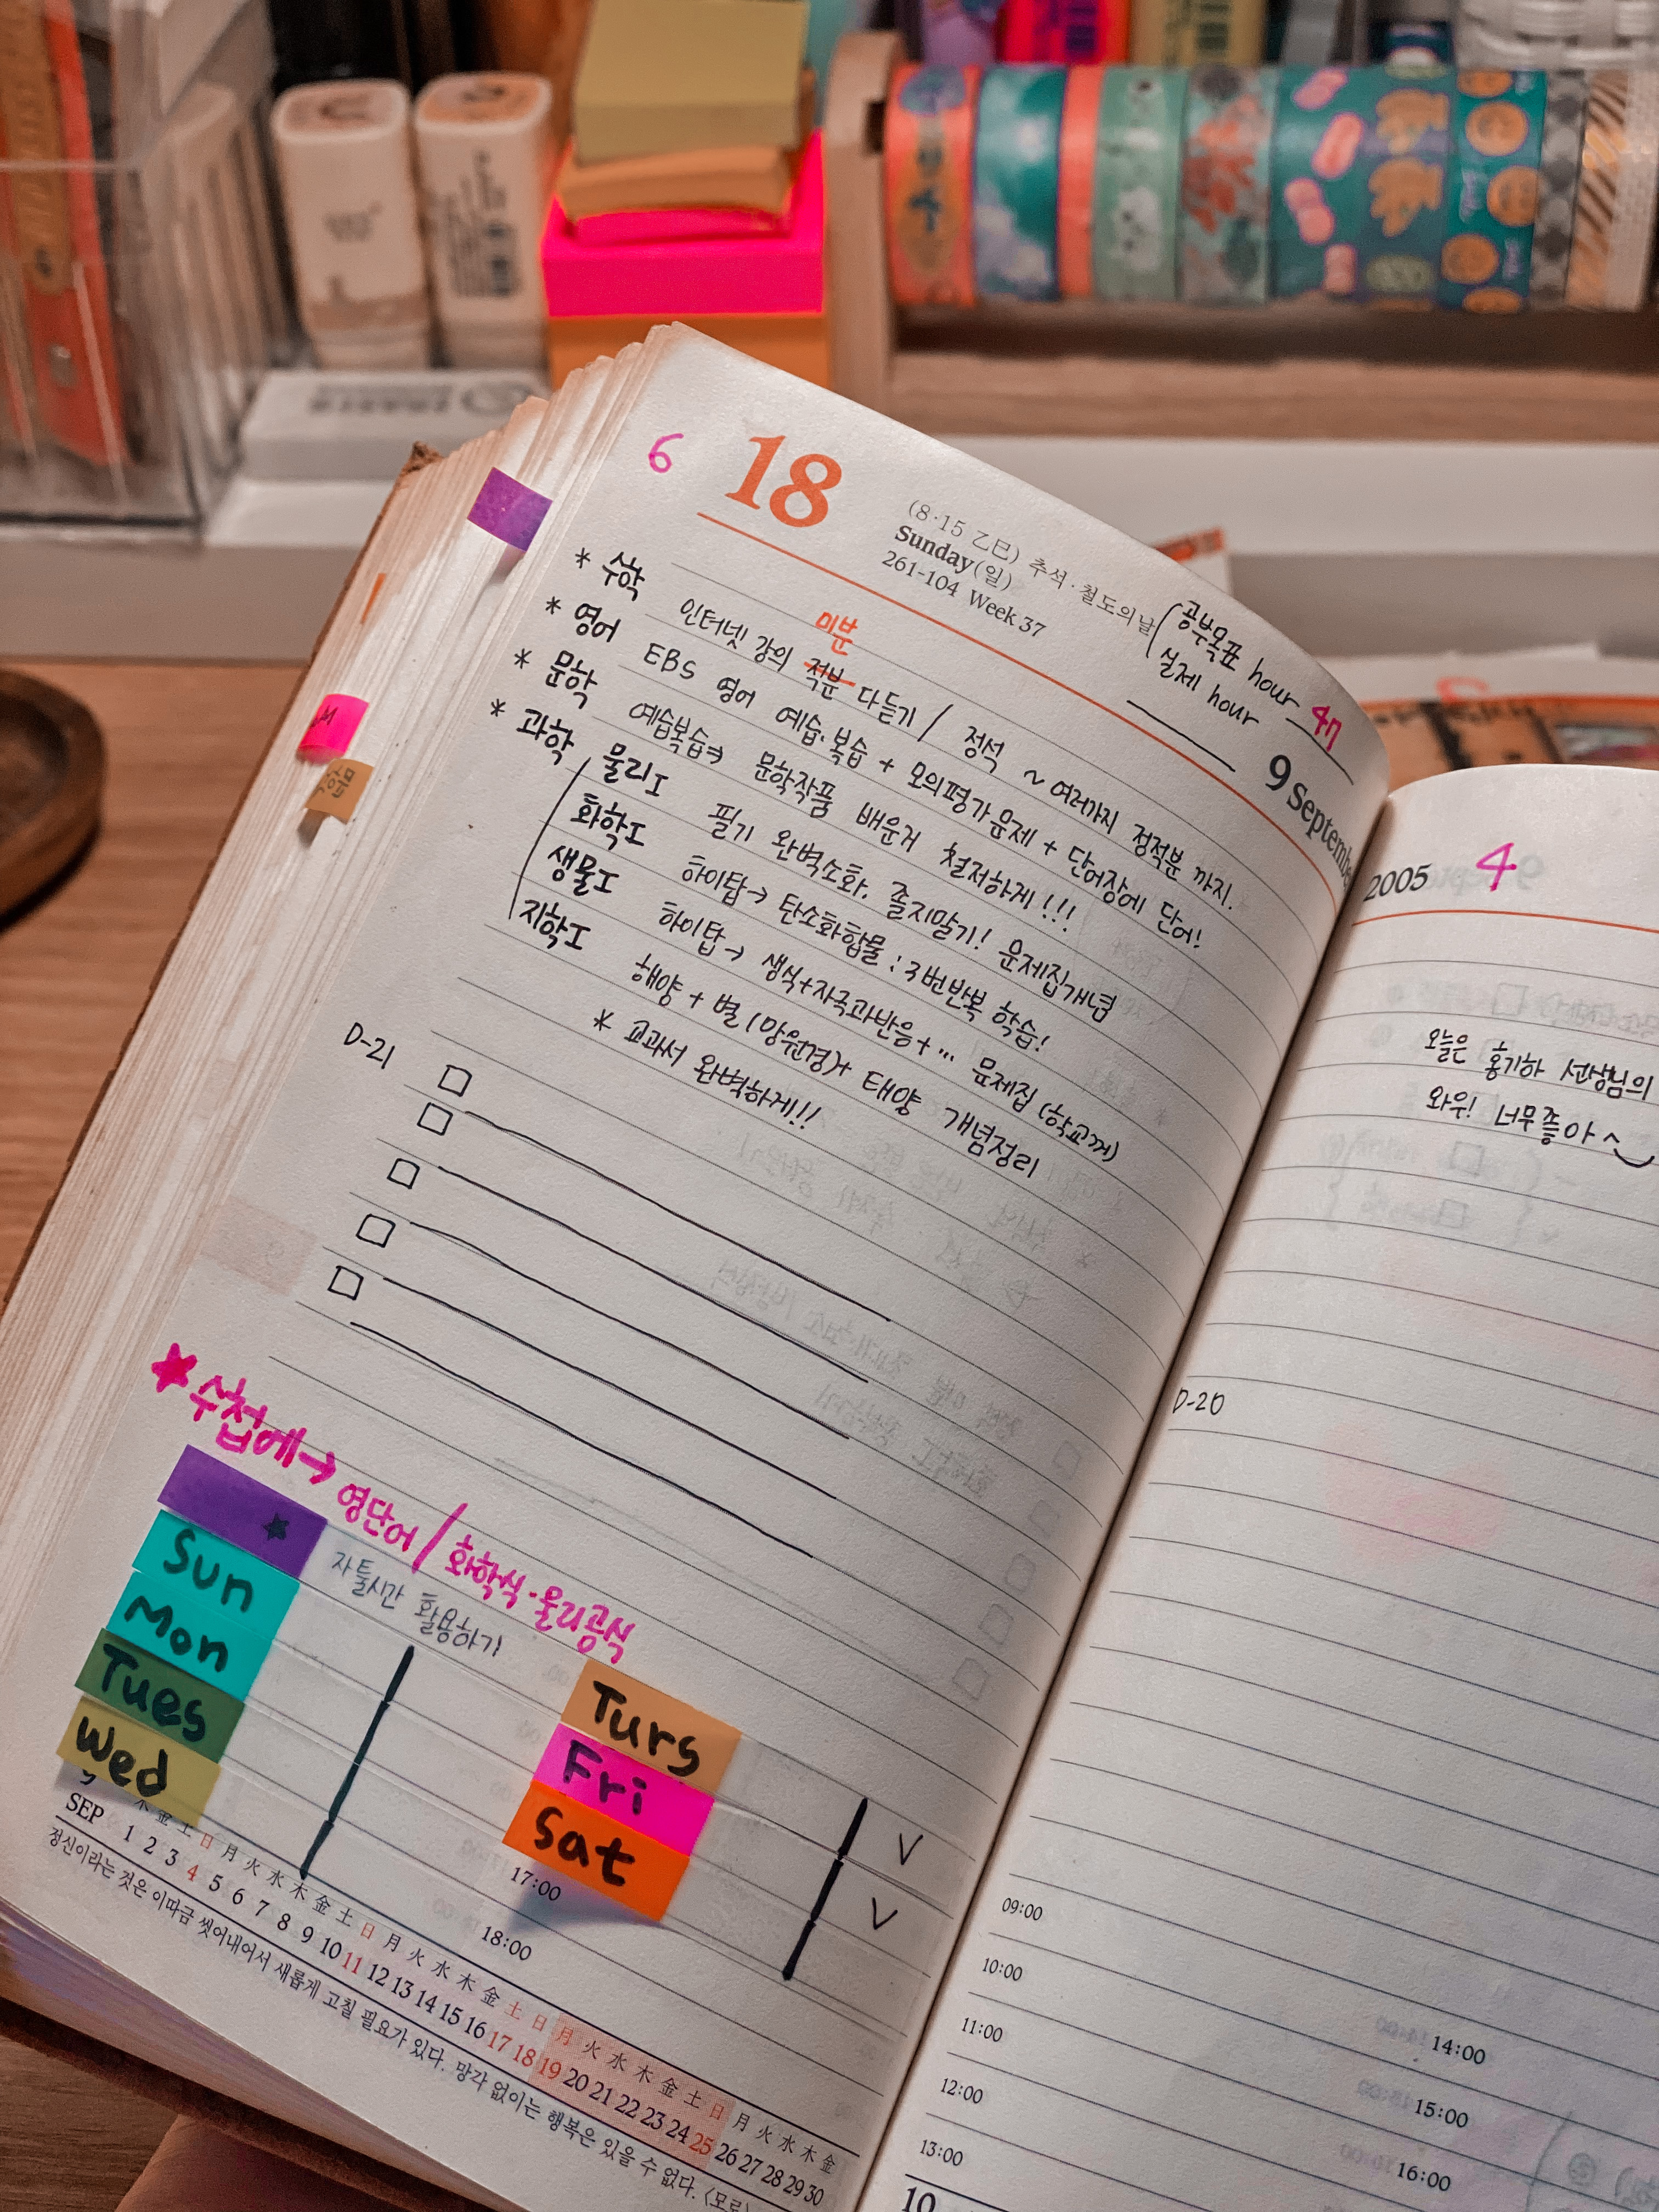 6
18
(8·15 乙巳) 추석·철도의날
Sunday(일)
261-104 Week 37
공부목표 hour 47
실제 hour
9 September
* 수학 인터넷 강의 적분 미분 다듬기 / 정석 ~ 여러까지 정적분 까지.
* 영어 EBS 영어 예습·복습 + 모의평가 문제 + 단어장에 단어!
* 문학 예습복습⇒ 문학작품 배운거 철저하게!!!
* 과학
물리I 필기 완벽소화, 졸지말기! 문제집개념
화학I 하이탑→ 탄소화합물 : 3번반복 학습!
생물I 하이탑→ 생식+자극과반응+… 문제집 (학교꺼)
지학I 해양 + 별(망원경)+ 태양 개념정리
* 교과서 완벽하게!!
D-21
수첩에→ 영단어/화학식·물리공식
자툴시간 활용하기
Sun
Mon
Tues
Wed
Turs
Fri
Sat
V
V
17:00
18:00
木 金 土 日 月 火 水 木 金 土 日 月 火 水 木 金 土 日 月 火 水 木 金 土 日 月 火 水 木 金
SEP 1 2 3 4 5 6 7 8 9 10 11 12 13 14 15 16 17 18 19 20 21 22 23 24 25 26 27 28 29 30
정신이라는 것은 이따금 씻어내어서 새롭게 고칠 필요가 있다. 망각 없이는 행복은 있을 수 없다. 〈모로
2005
4
오늘은 홍기하 선생님의
와우! 너무좋아^
D-20
09:00
10:00
11:00
12:00
13:00
14:00
15:00
16:00
10